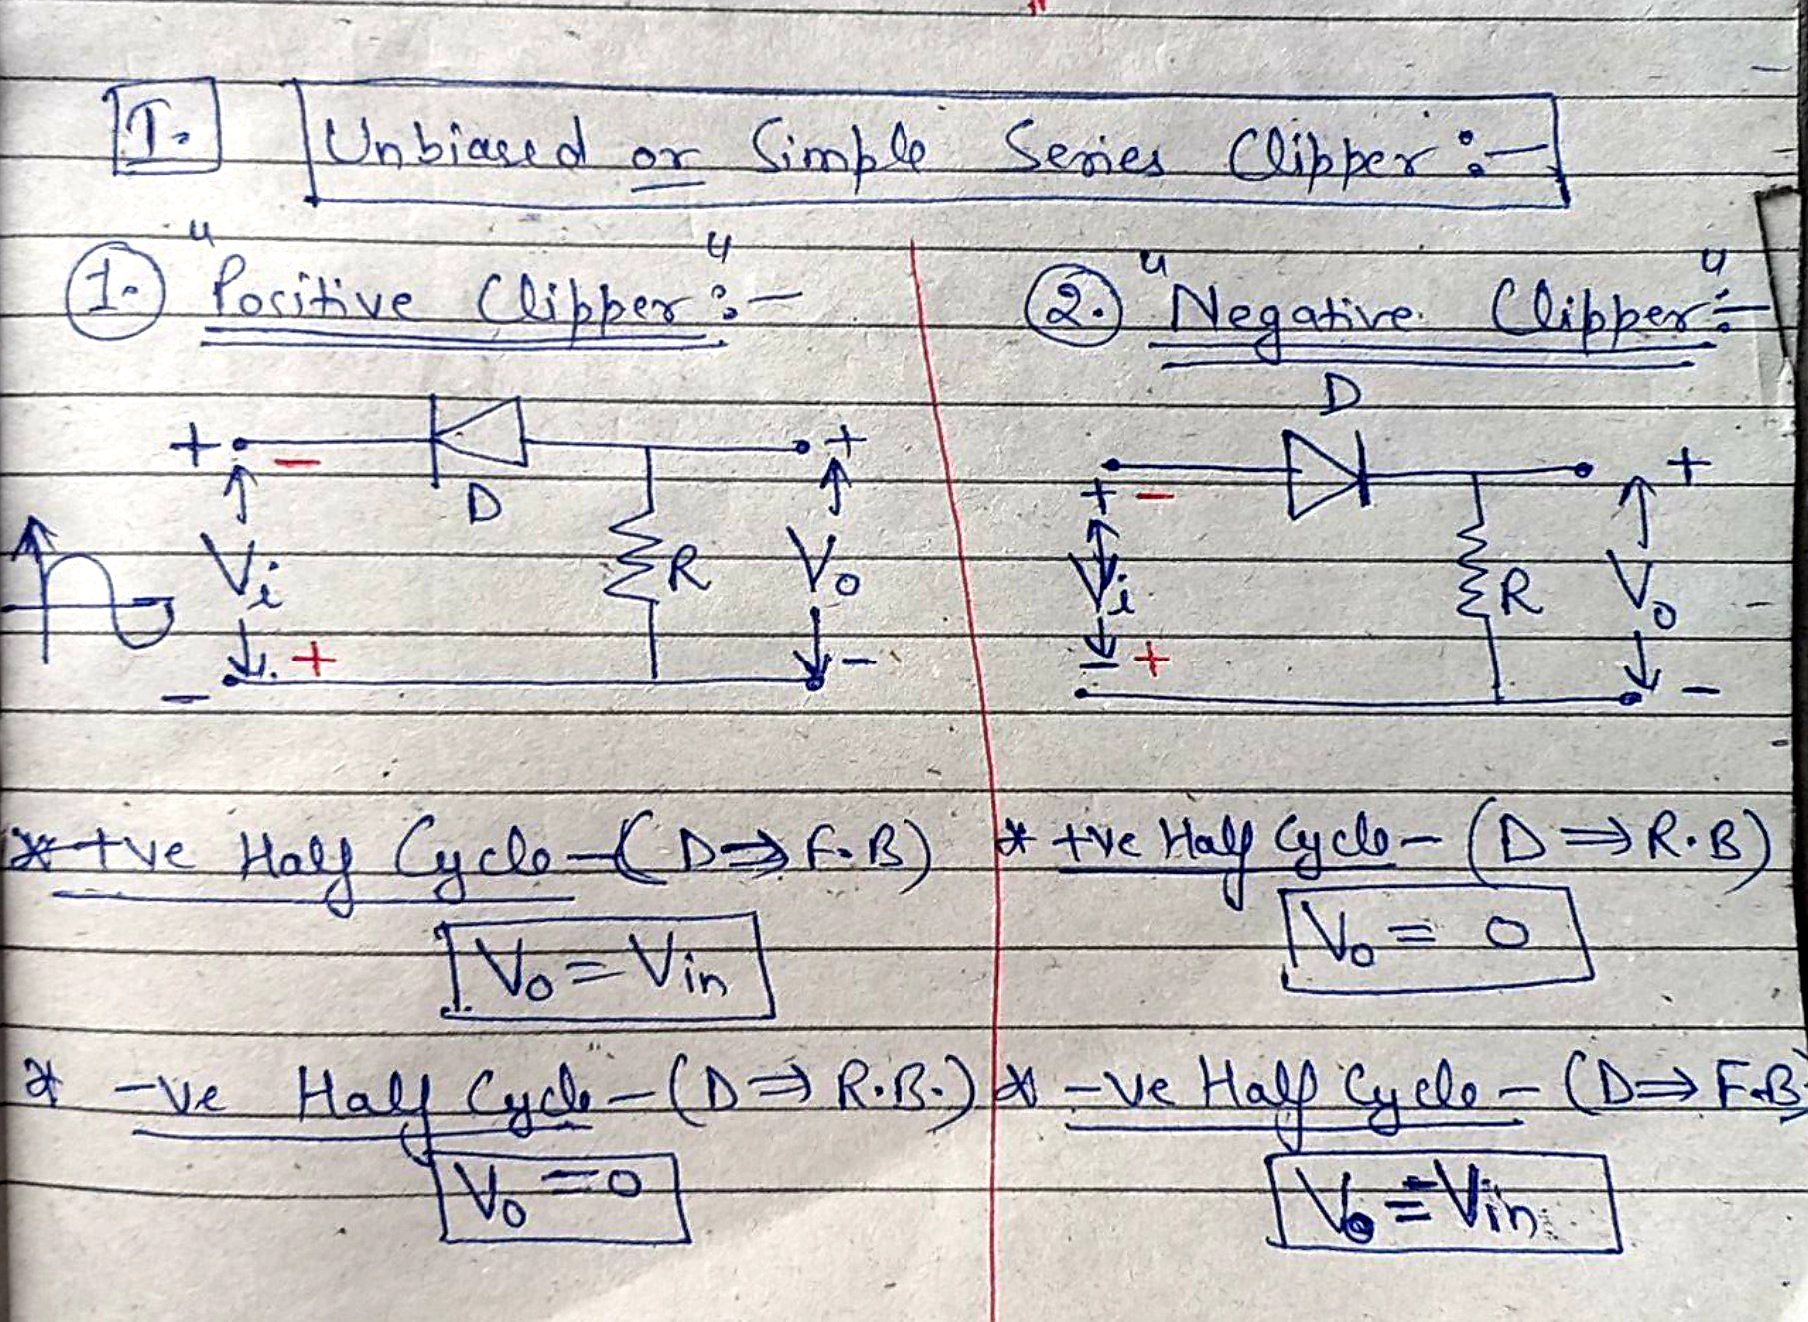 I. Unbiased or Simple Series Clipper :-
1. "Positive Clipper" :-
+ - D +
Vi R Vo
- + -
* +ve Half Cycle - (D ⇒ F.B)
Vo = Vin
* -ve Half Cycle - (D ⇒ R.B.)
Vo = 0
2. "Negative Clipper" :-
D
+ - +
Vi R Vo
- + -
* +ve Half Cycle - (D ⇒ R.B)
Vo = 0
* -ve Half Cycle - (D ⇒ F.B)
Vo = Vin